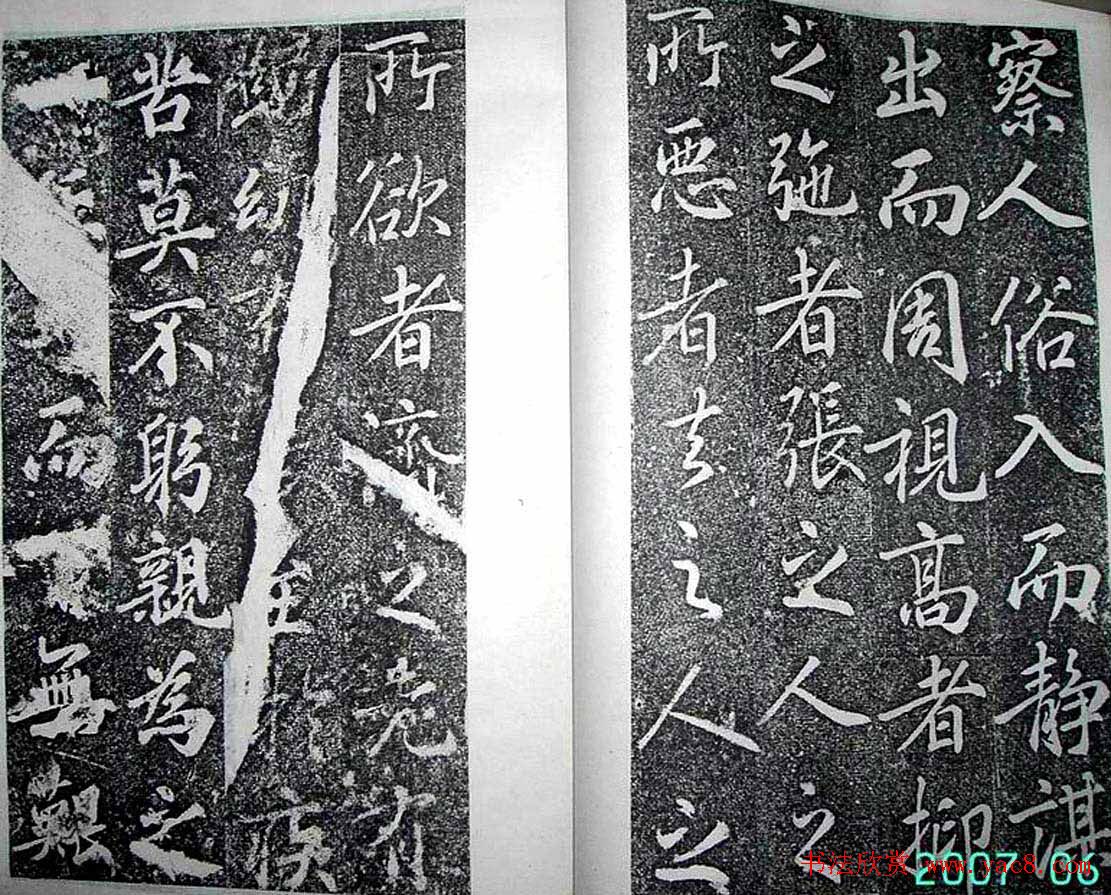 察人俗入而静謀
出而周視高者抑
之弛者張之人之
所惡者去之人之
所欲者聚之老有
幼
疾
苦莫不躬親為之
而無艱
书法欣赏 www.yac8.com
2007.06